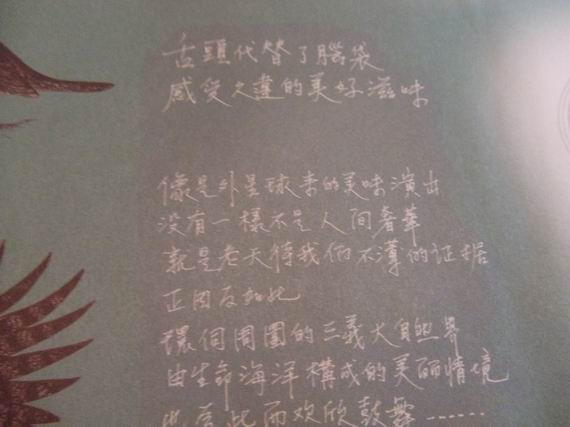 舌頭代替了腦袋
感受久違的美好滋味
像是外星球來的美味演出
沒有一樣不是人间奢華
就是老天待我们不薄的证据
正因為如此
環伺周圍的三義大自然界
由生命海洋構成的美丽情境
也為此而欢欣鼓舞------